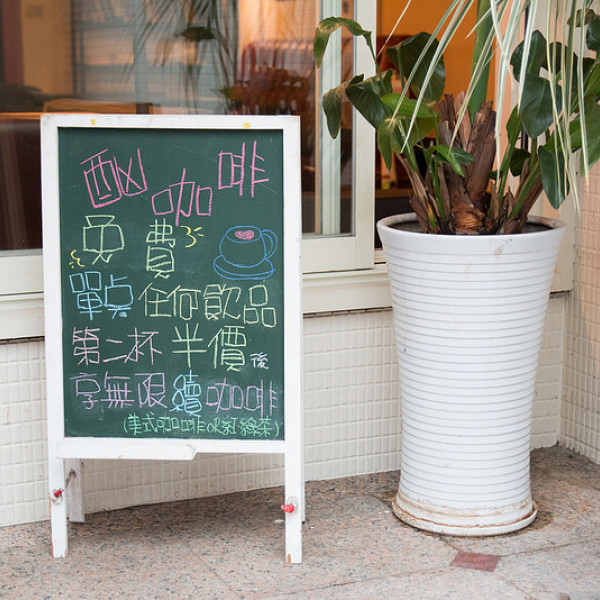 酗咖啡
免費
單點任何飲品
第二杯半價後
享無限續咖啡
(美式咖啡OR紅綠茶)